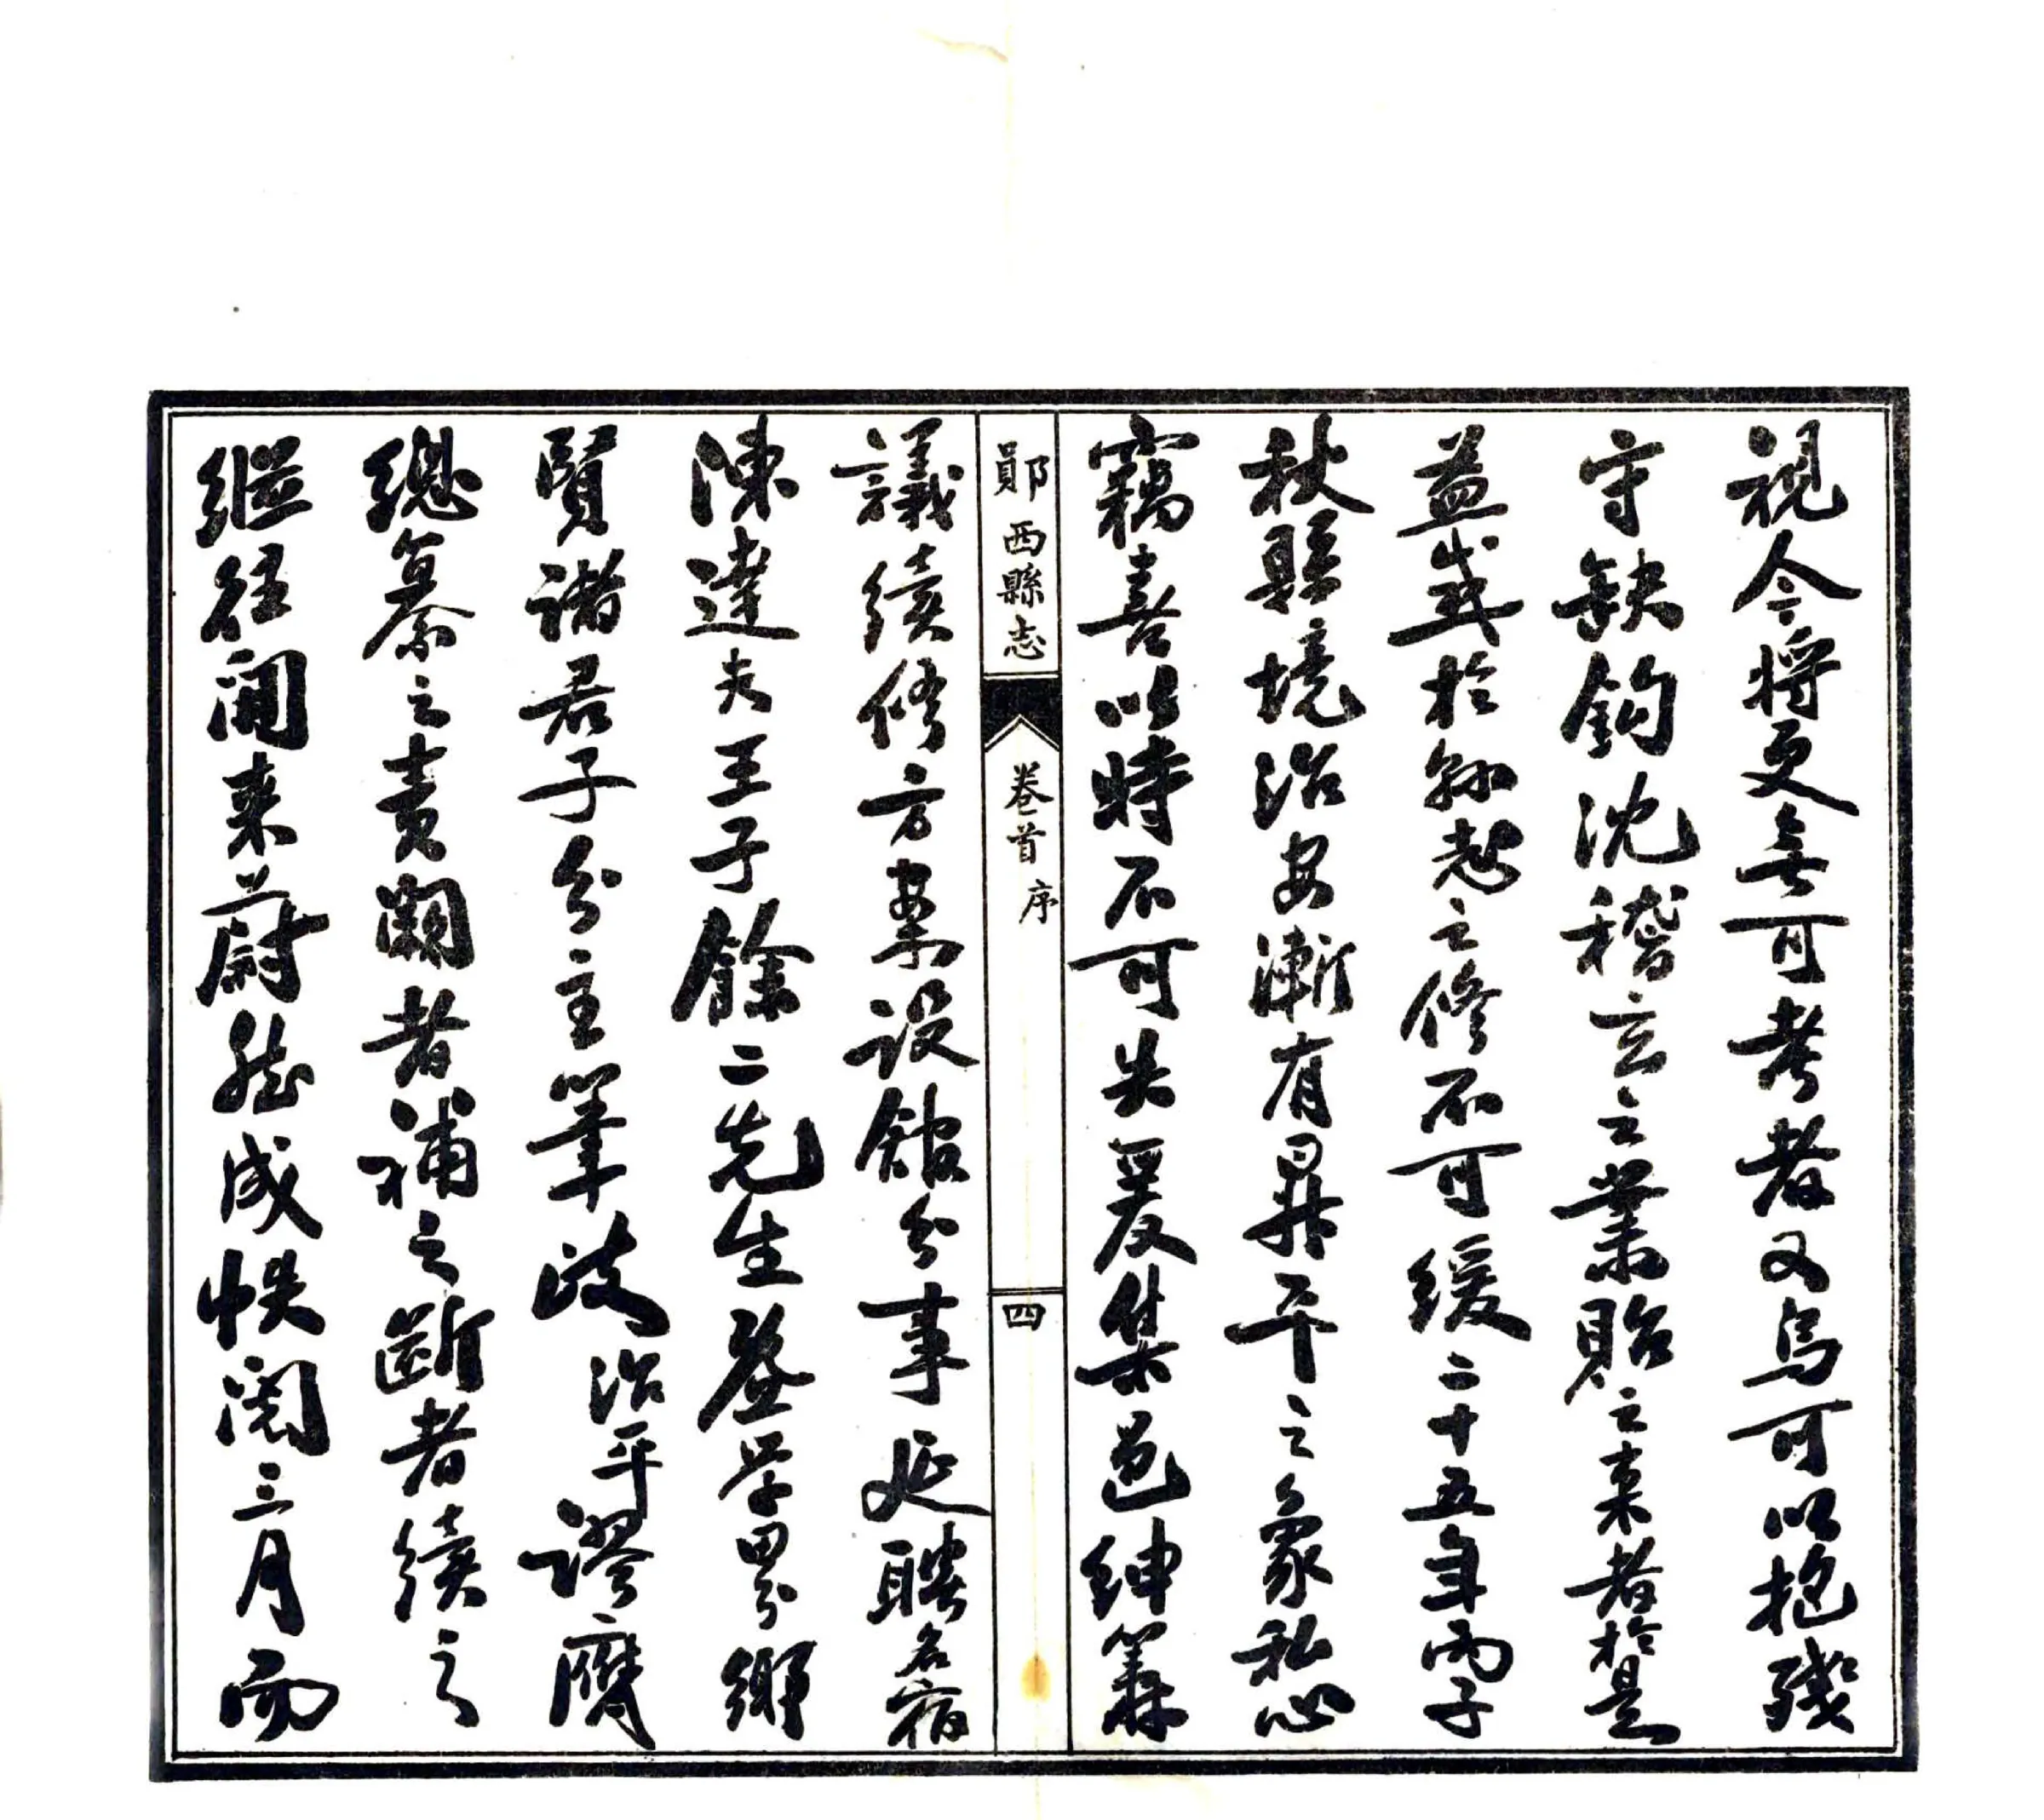 視今將更無可考者又烏可以抱殘
守缺鈎沈稽玄之業貽之來者於是
益感於縣志之修不可緩二十五年丙子
秋縣境治安漸有昇平之象私心
竊喜以時不可失爰集邑紳籌
郧西縣志
卷首 序
四
議續修方案設館分事延聘名宿
陳達夫王子餘二先生啓學畀鄉
賢諸君子分主筆政治平謬膺
總纂之責闕者補之斷者續之
繼往開來蔚然成帙閱三月而